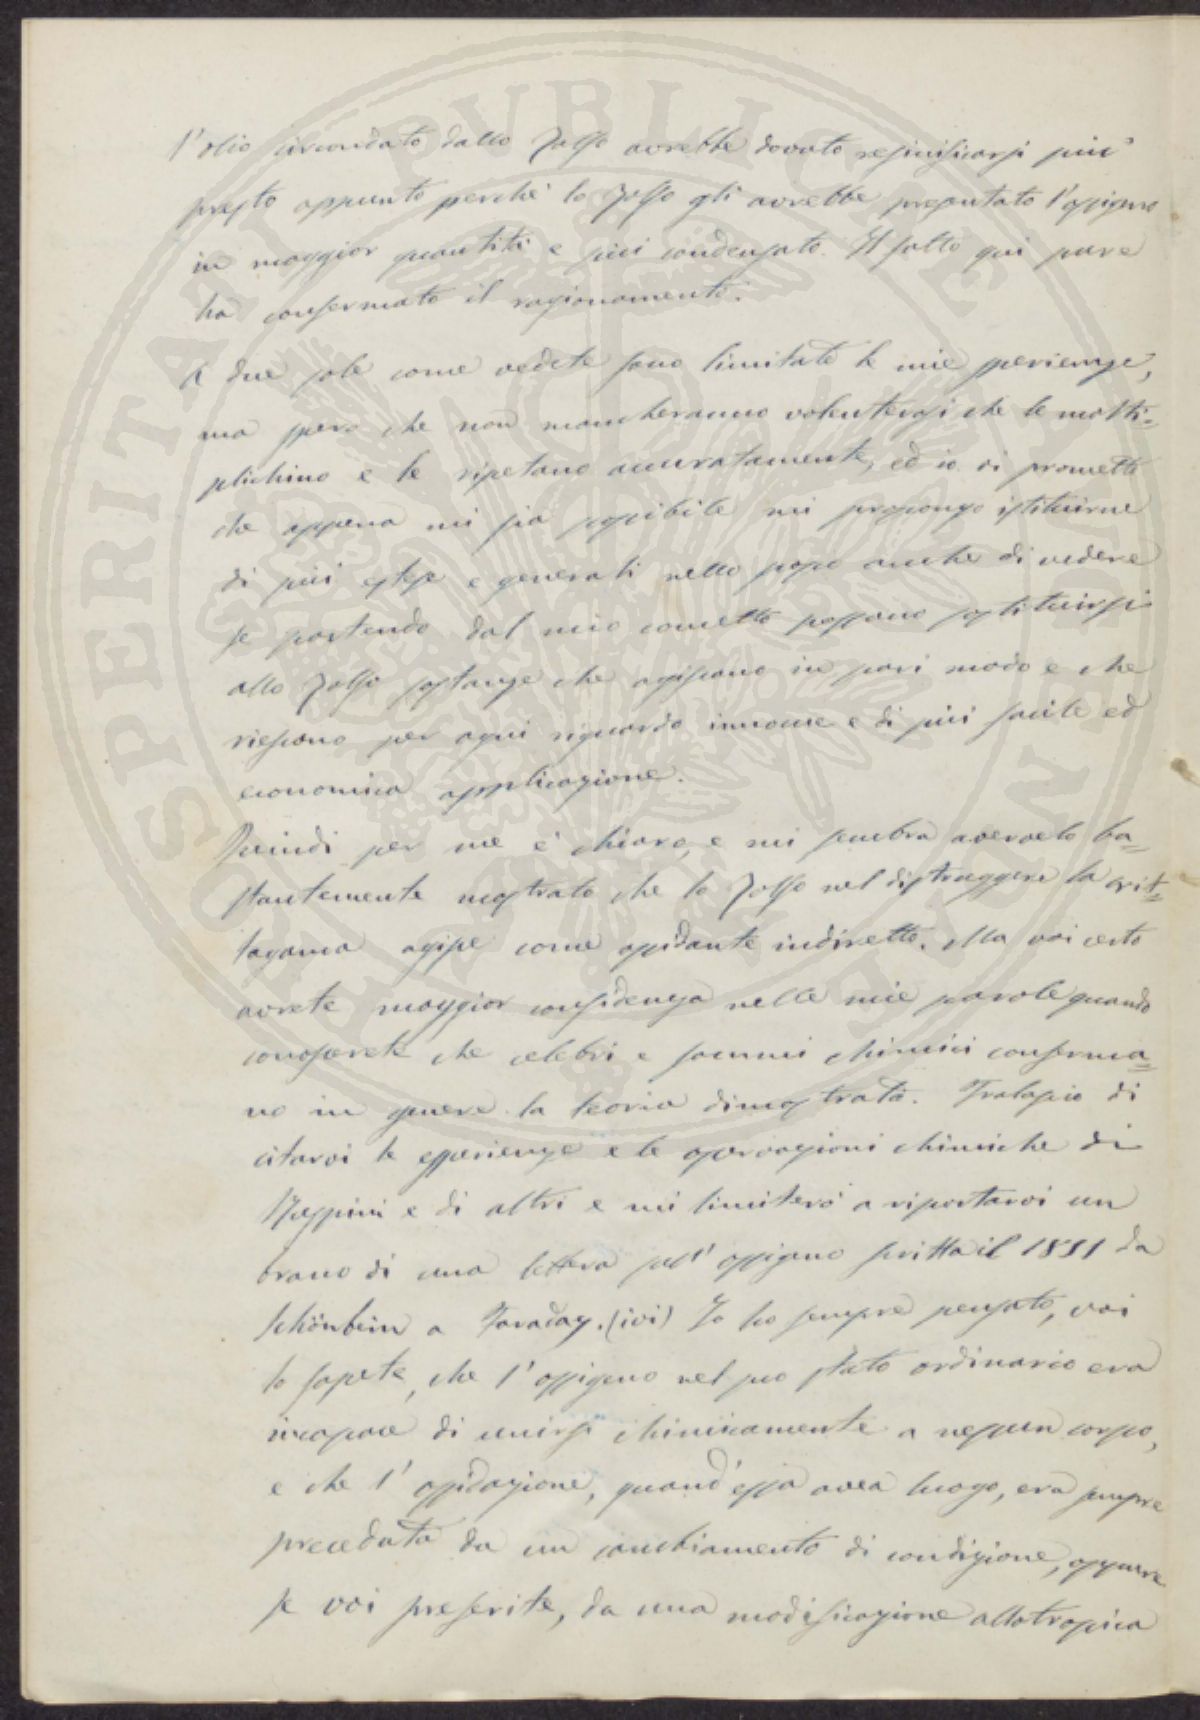 l'olio circondato dallo Zolfo avrebbe dovuto resinificarsi più
presto appunto perchè lo Zolfo gli avrebbe presentato l'ossigeno
in maggior quantità e più condensato. Il fatto qui pure
ha confermato il ragionamento.
A due sole come vedete sono limitate le mie sperienze,
ma spero che non mancheranno volenterosi che le molti=
plichino e le ripetano accuratamente, ed io vi prometto
che appena mi sia possibile mi propongo istituirne
di più estese e generali nello scopo anche di vedere
se partendo dal mio concetto possano sostituirsi
allo Zolfo sostanze che agiscano in pari modo e che
riescano per ogni riguardo innocue e di più facile ed
economica applicazione.
Quindi per me è chiaro, e mi sembra avervelo ba=
stantemente mostrato che lo Zolfo nel distruggere la crit=
togama agisce come ossidante indiretto. Ma voi certo
avrete maggior confidenza nelle mie parole quando
conoscerete che celebri e sommi chimici conferma=
no in genere la teoria dimostrata. Tralascio di
citarvi le esperienze e le osservazioni chimiche di
e di altri e mi limiterò a riportarvi un
brano di una lettera sull'ossigeno scritta il 1851 da
Schönbein a Faraday. (ivi) Io ho sempre pensato, voi
lo sapete, che l'ossigeno nel suo stato ordinario era
incapace di unirsi chimicamente a nessun corpo,
e che l'ossidazione, quand'essa avea luogo, era sempre
preceduta da un cambiamento di condizione, oppure
se voi preferite, da una modificazione allotropica